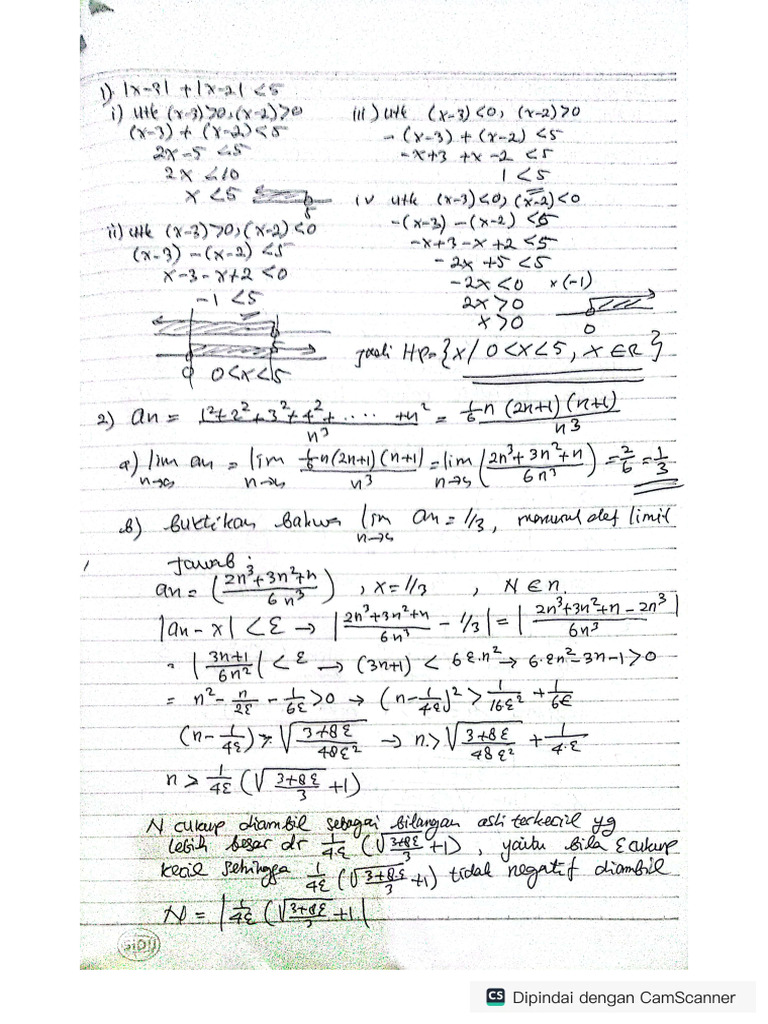 1) |x-3| + |x-2| < 5
i) utk (x-3)>0, (x-2)>0
(x-3) + (x-2) < 5
2x-5 < 5
2x < 10
x < 5
5
ii) utk (x-3)>0, (x-2)<0
(x-3) - (x-2) < 5
x-3-x+2 < 0
-1 < 5
0 < x < 5
iii) utk (x-3)<0, (x-2)>0
-(x-3) + (x-2) < 5
-x+3 +x-2 < 5
1 < 5
iv utk (x-3)<0, (x-2)<0
-(x-3) - (x-2) < 5
-x+3-x+2 < 5
-2x+5 < 5
-2x < 0 x(-1)
2x > 0
x > 0
0
jadi HP = {x/ 0<x<5, x ∈ R}
2) an = 1²+2²+3²+4²+.....+n² / n³ = 1/6 n (2n+1)(n+1) / n³
a) lim n→∞ an = lim n→∞ 1/6 n(2n+1)(n+1) / n³ = lim n→∞ (2n³+3n²+n / 6n³) = 2/6 = 1/3
b) Buktikan bahwa lim n→∞ an = 1/3, menurut def limit
Jawab :
an = (2n³+3n²+n / 6n³), x = 1/3, N ∈ n
|an - x| < ε → |2n³+3n²+n / 6n³ - 1/3| = |2n³+3n²+n-2n³ / 6n³|
= |3n+1 / 6n²| < ε → (3n+1) < 6ε.n² → 6.εn²-3n-1>0
= n² - n/2ε - 1/6ε > 0 → (n - 1/4ε)² > 1/16ε² + 1/6ε
(n - 1/4ε) > √(3+8ε / 48ε²) → n > √(3+8ε / 48ε²) + 1/4.ε
n > 1/4ε (√(3+8ε / 3) + 1)
N cukup diambil sebagai bilangan asli terkecil yg
lebih besar dr 1/4ε (√(3+8ε / 3) + 1), yaitu bila ε cukup
kecil sehingga 1/4ε (√(3+8.ε / 3) + 1) tidak negatif diambil
N = | 1/4ε (√(3+8ε / 3) + 1 |
SIDU
CS Dipindai dengan CamScanner